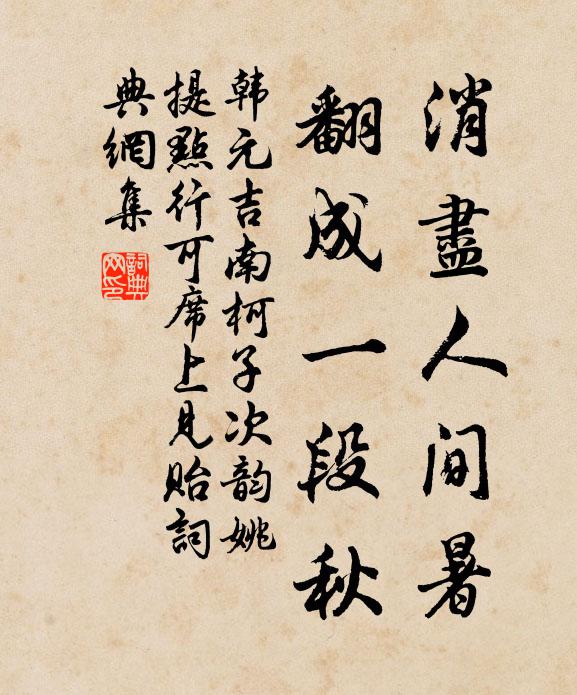 消盡人间暑
翻成一段秋
韩元吉南柯子次韵姚
提點行可席上見貽詞
典網集
詞典网印